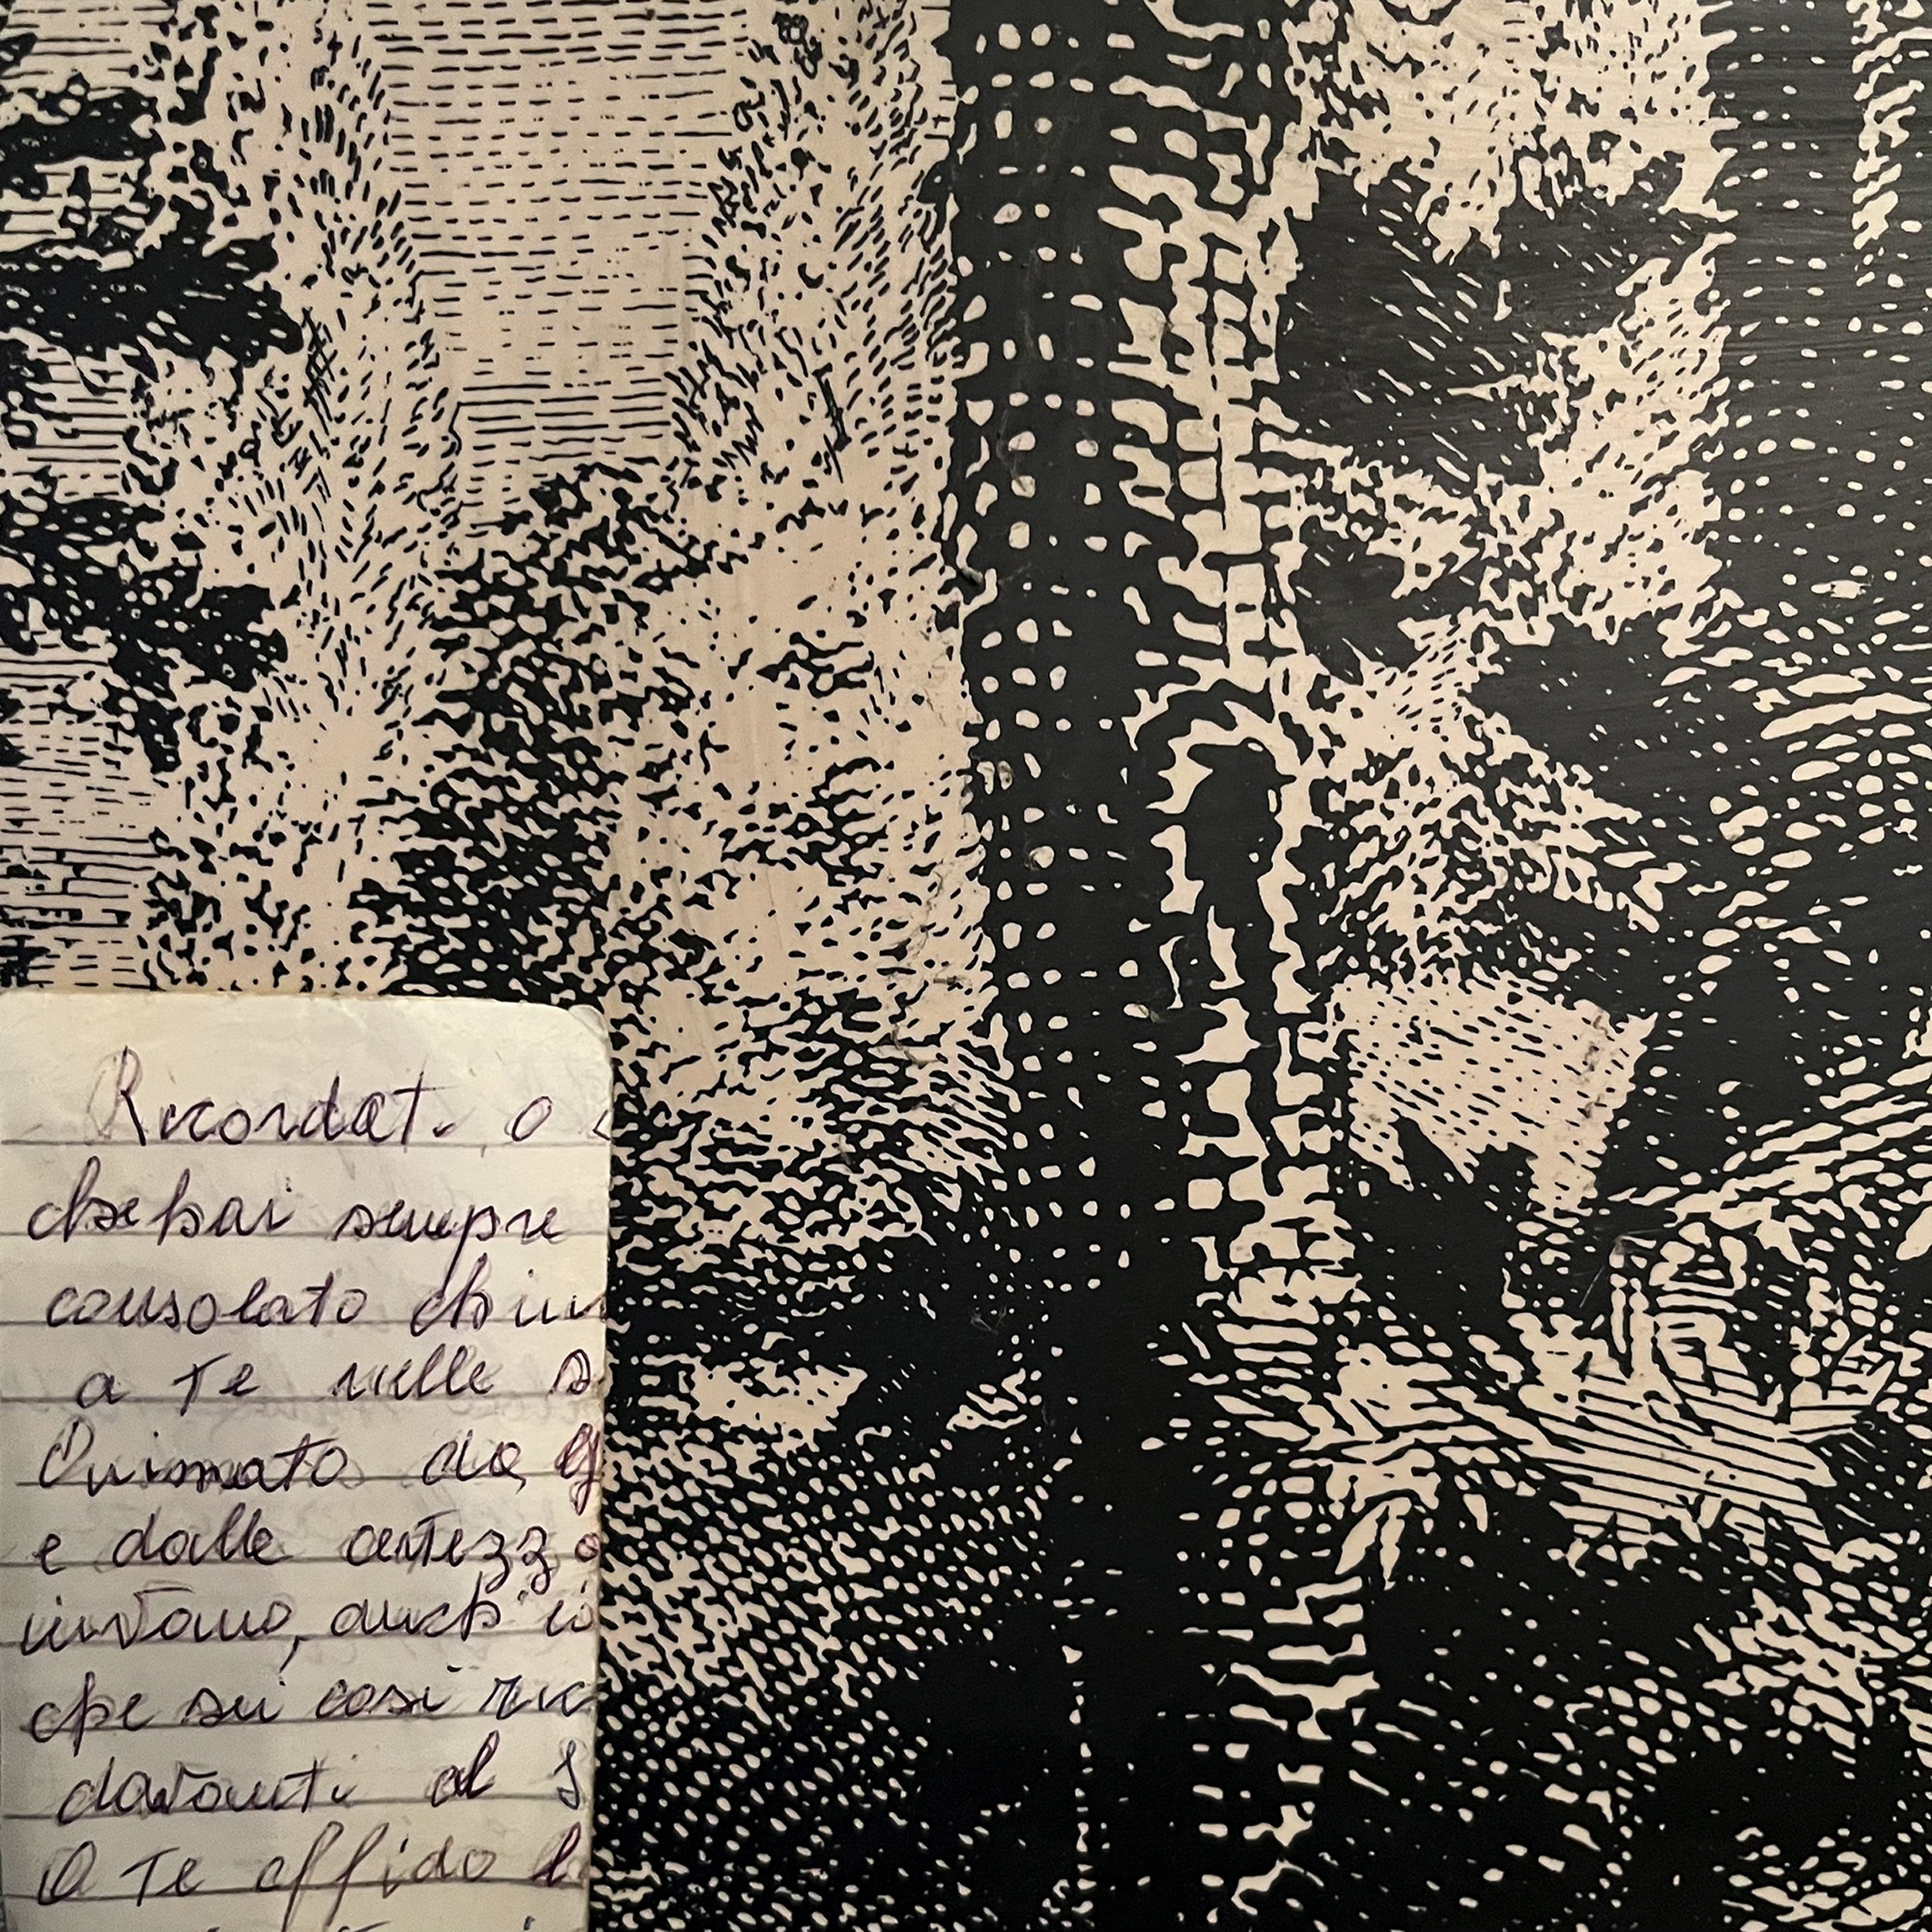 Ricordati o
che hai sempre
consolato chi
a Te nelle
Animato da
e dalle certezz
intorno, anch' io
che sei così ric
davanti al S
A Te affido